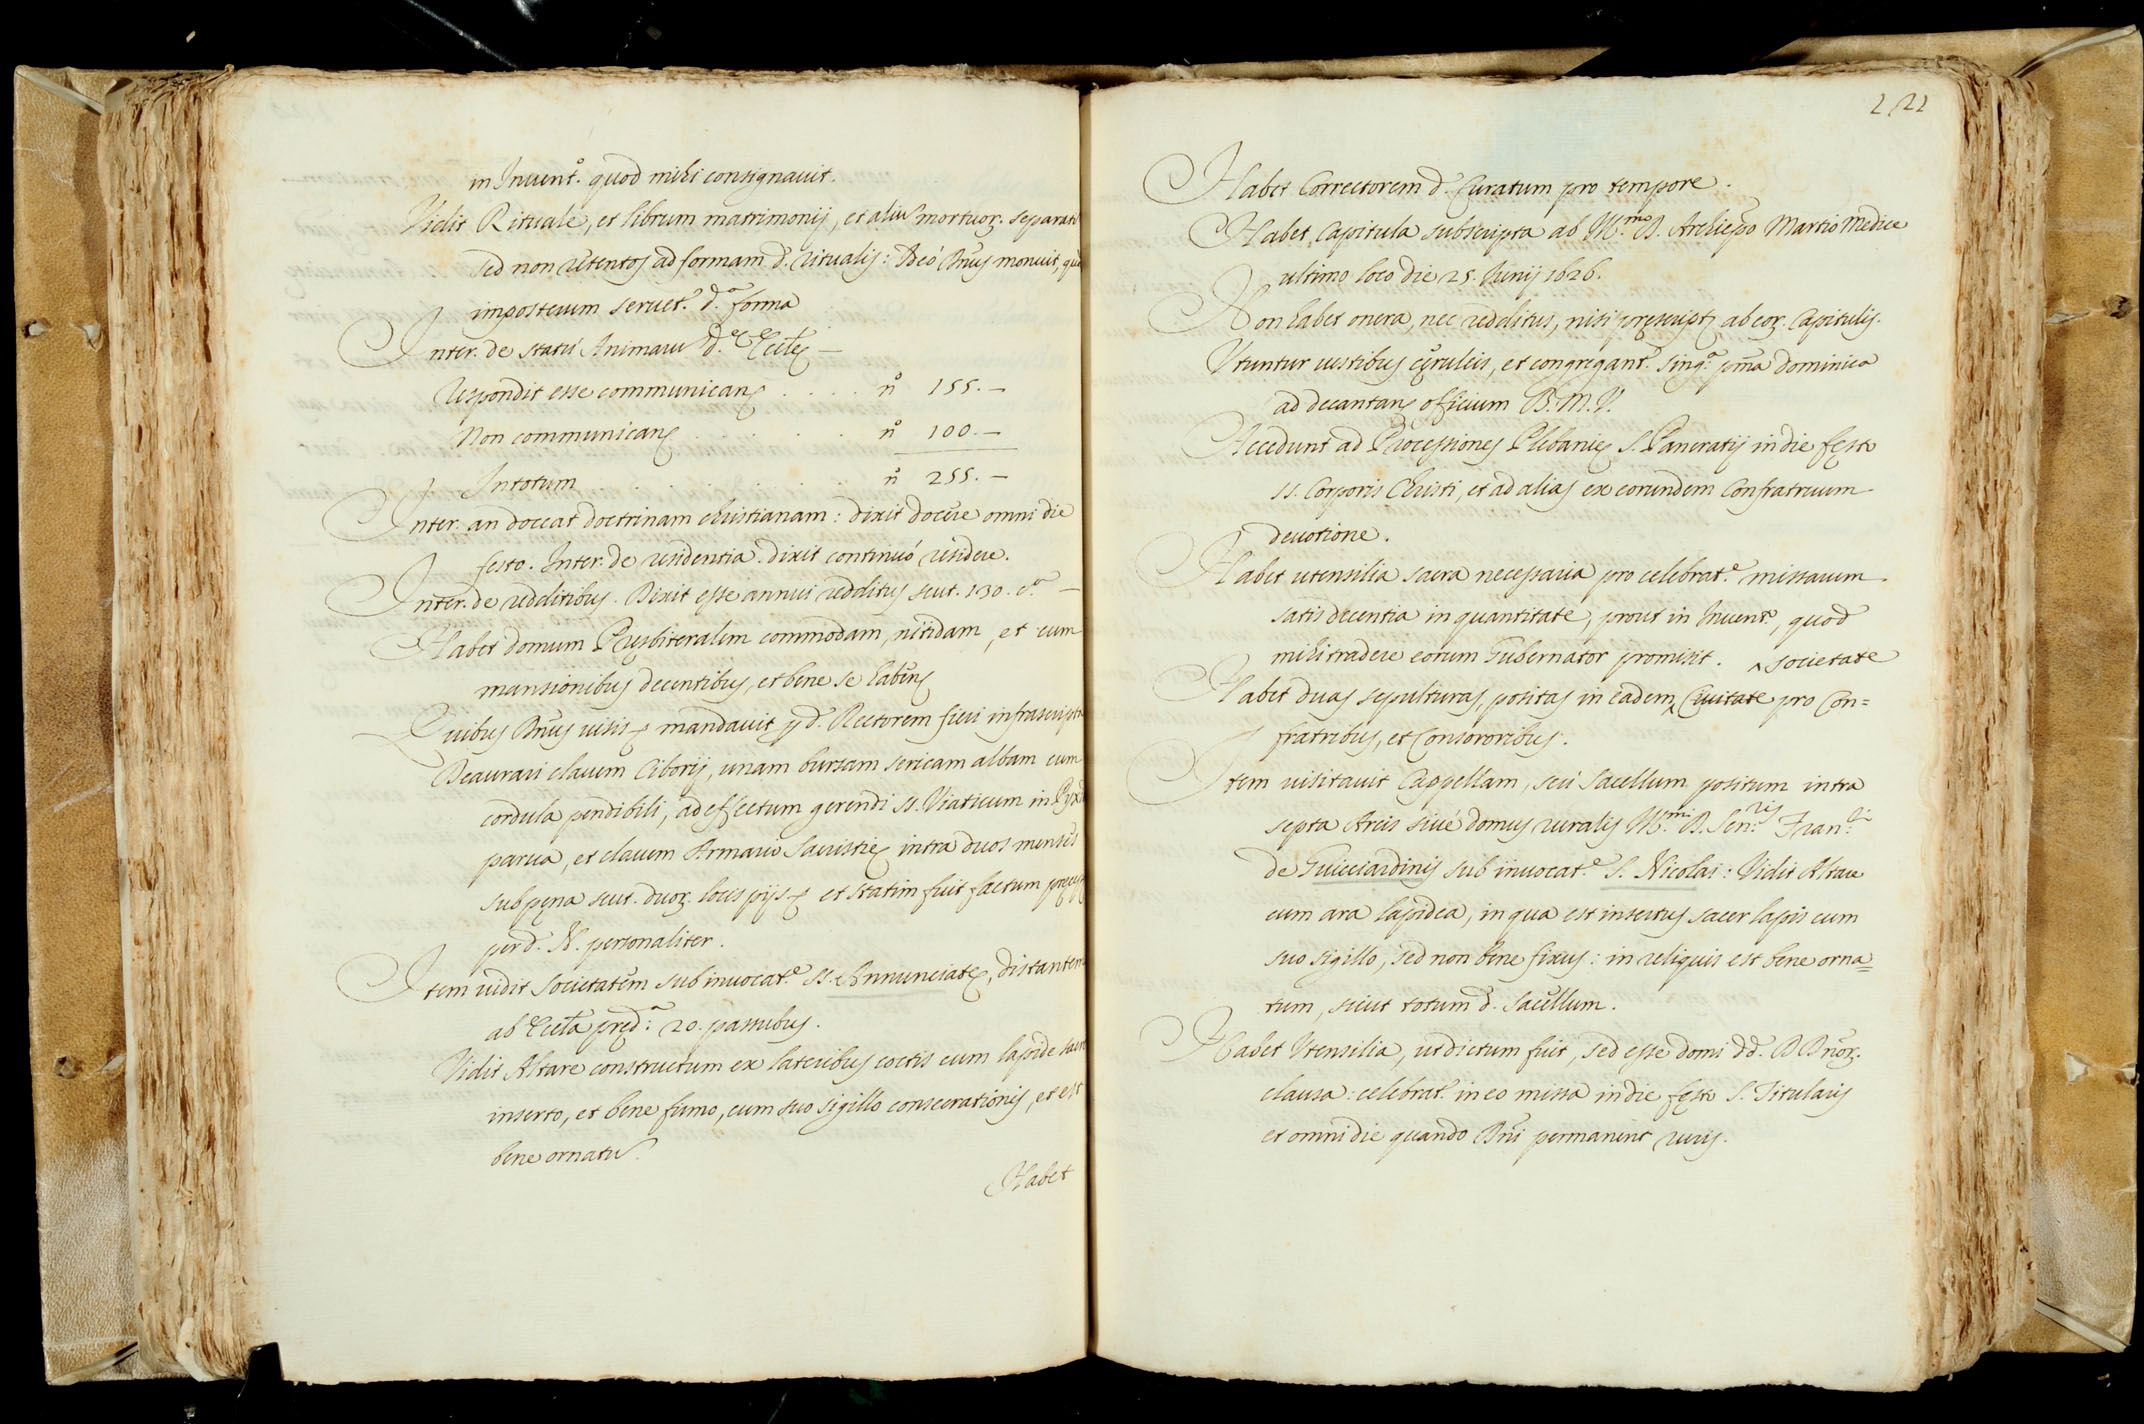 in Inuent.º quod mihi consignauit.
Vidit Rituale, et librum matrimonij, et aliu mortuor. separat
sed non retentos ad formam d. Ritualis: Ideò Dnus monuit, què
imposterum seruet.r d.a forma
Inter. de statu Animaru d.e Eccle —
Respondit esse communicane . . . . nº 155. —
Non communicane . . . . . nº 100. —
In totum . . . . . . nº 255. —
Inter. an doceat doctrinam christianam: dixit docere omni die
festo. Inter. de residentia. dixit continuò residere.
Inter. de redditibus. Dixit esse annui redditus scut. 130. c.a —
Habet domum Presbiteralem commodam, nitidam, et cum
mansionibus decentibus, et bene se habens
Quibus Dnus uisis mandauit p d. Rectorem fieri infrascripta
Deaurari clauem Ciborij, unam bursam sericam albam cum
cordula pendibili, ad effectum gerendi SS. Viaticum in Pyxi
parua, et clauem Armario Sacristie intra duos menses
sub pena scut. duor. locis pijs et statim fuit factum
per d. N. personaliter.
Item uidit Societatem sub inuocat.e SS. Annunciate, distantem
ab Eccla pred.a 20. passibus.
Vidit Altare constructum ex lateribus coctis cum lapide sacro
inserto, et bene firmo, cum suo sigillo consecrationis, et est
bene ornatu.
Habet
221
Habet Correctorem d. Curatum pro tempore.
Habet Capitula subscripta ab Ill.mo D. Archiepo Martio Medice
ultimo loco die 25. Junij 1626.
Non habet onera, nec redditus, nisi prescript ab eor. Capitulis.
Utuntur uestibus ceruleis, et congregant.r sing.a pma dominica
ad decantand officium B. M. V.
Accedunt ad Processiones Plebanie S. Pancratij in die festo
SS. Corporis Christi, et ad alias ex eorundem Confratruum
deuotione.
Habet utensilia sacra necessaria pro celebrat.e missarum
satis decentia in quantitate, prout in Inuent.o, quod
mihi tradere eorum Gubernator promisit. ^ societate
Habet duas sepulturas, positas in eadem ^ Ciuitate pro Con=
fratribus, et Consororibus.
Item uisitauit Cappellam, seù Sacellum positum intra
septa Arcis siuè domus ruralis Ill.mi D. Sen.ris Fran.ci
de Guicciardinis sub inuocat.e S. Nicolai: Vidit Altare
cum ara lapidea, in qua est insertus sacer lapis cum
suo sigillo, sed non bene fixus: in reliquis est bene orna=
tum, sicut totum d. Sacellum.
Habet Utensilia, ut dictum fuit, sed esse domi dd. D Dnor.
clausa: celebrat.r in eo missa in die festo S. Titularis
et omni die quando Dni permanent ruris.